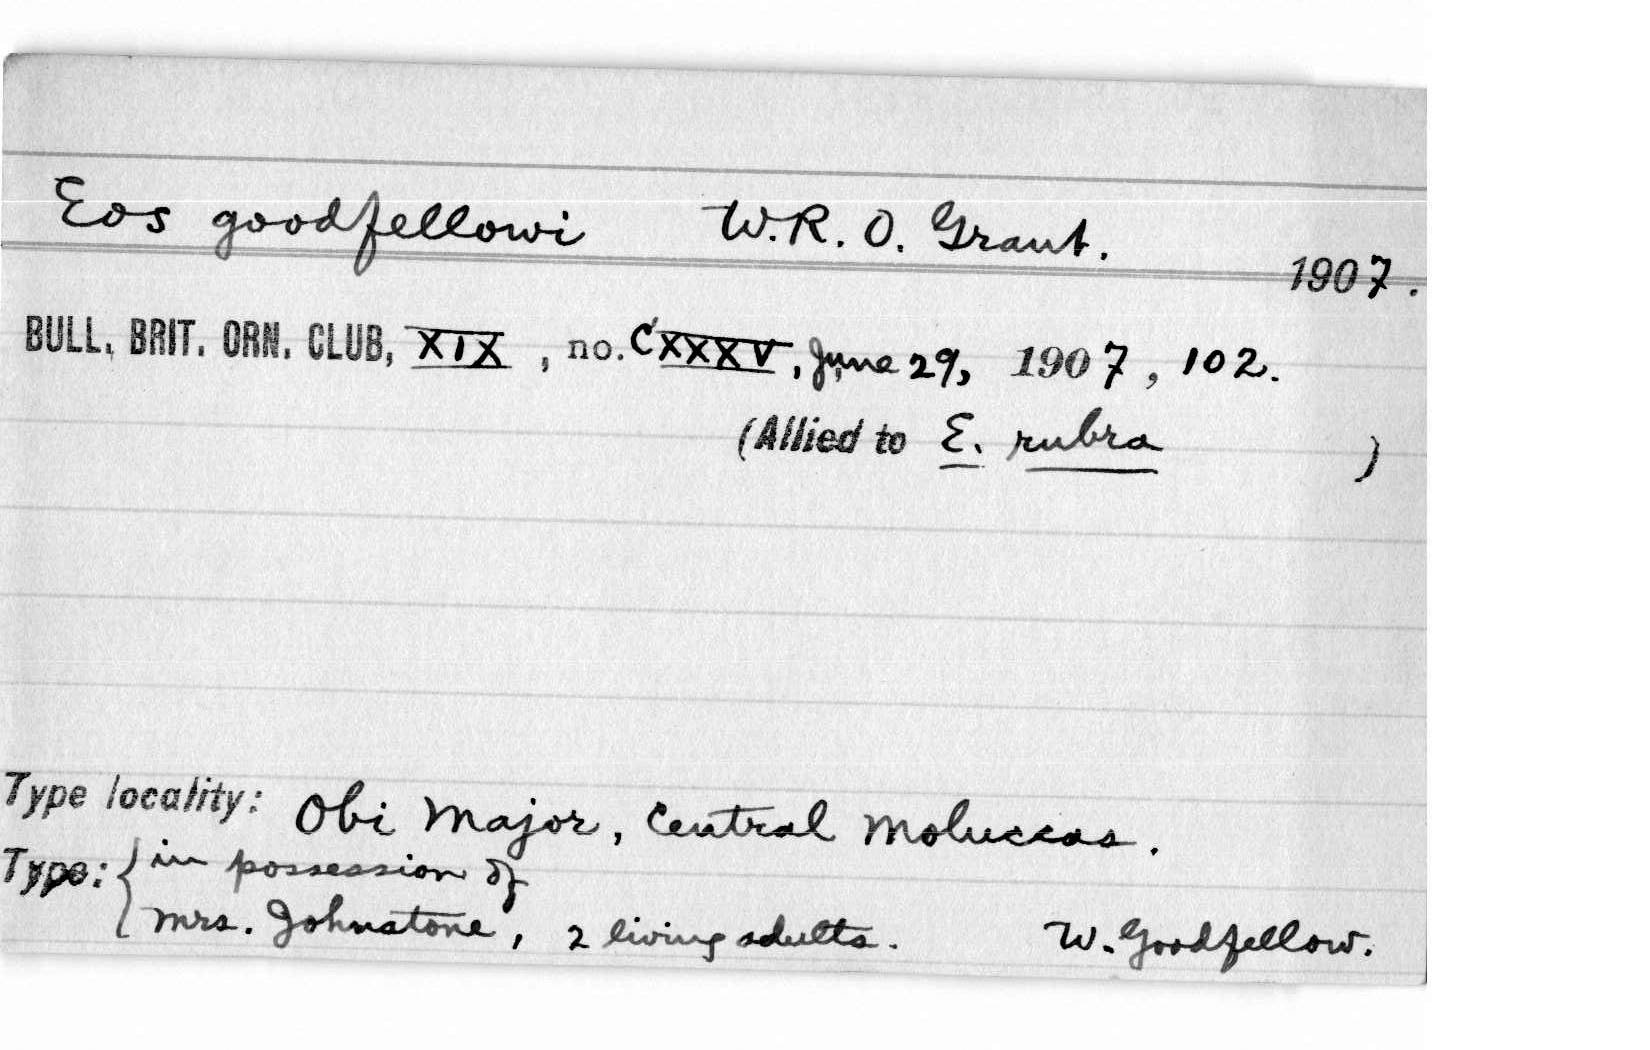 Eos goodfellowi W.R.O. Grant.
1907.
BULL. BRIT. ORN. CLUB, XIX, no. CXXXV, June 29, 1907, 102.
(Allied to E. rubra )
Type locality: Obi Major, Central Moluccas.
Type: { in possession of
Mrs. Johnstone, 2 living adults. W. Goodfellow.